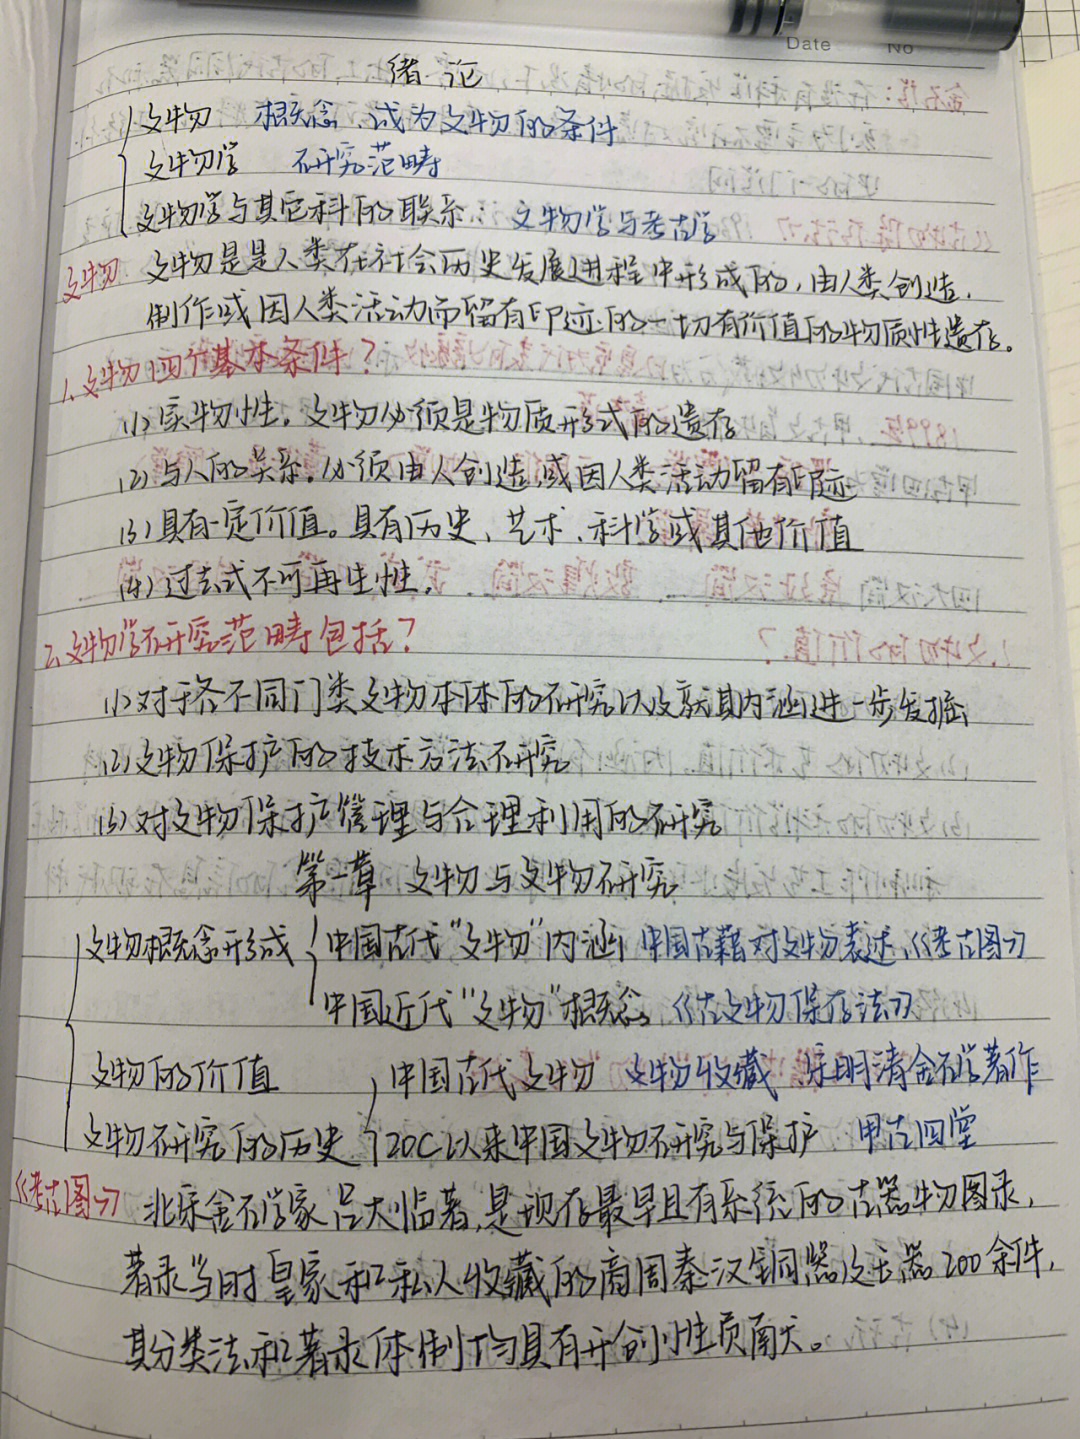 Date No
绪论
文物 概念、成为文物的条件
文物学 研究范畴
文物学与其它科的联系 文物学与考古学
文物 文物是是人类在社会历史发展进程中形成的，由人类创造、
制作或因人类活动而留有印迹的一切有价值的物质性遗存。
1、文物四个基本条件？
(1) 实物性。文物必须是物质形式的遗存
(2) 与人的关系。必须由人创造或因人类活动留有印迹
(3) 具有一定价值。具有历史、艺术、科学或其他价值
(4) 过去式不可再生性。
2、文物学研究范畴包括？
(1) 对于各不同门类文物本体的研究以及就其内涵进一步发掘
(2) 文物保护的技术方法研究
(3) 对文物保护管理与合理利用的研究
第一章 文物与文物研究
文物概念形成 中国古代“文物”内涵 中国古籍对文物表述、《考古图》
中国近代“文物”概念 《古文物保存法》
文物的价值 中国古代文物 文物收藏 宋明清金石学著作
文物研究的历史 20C以来中国文物研究与保护 甲古四堂
《考古图》 北宋金石学家吕大临著，是现存最早且有系统的古器物图录，
著录当时皇家和私人收藏的商周秦汉铜器及玉器200余件，
其分类法和著录体制均具有开创性贡献。